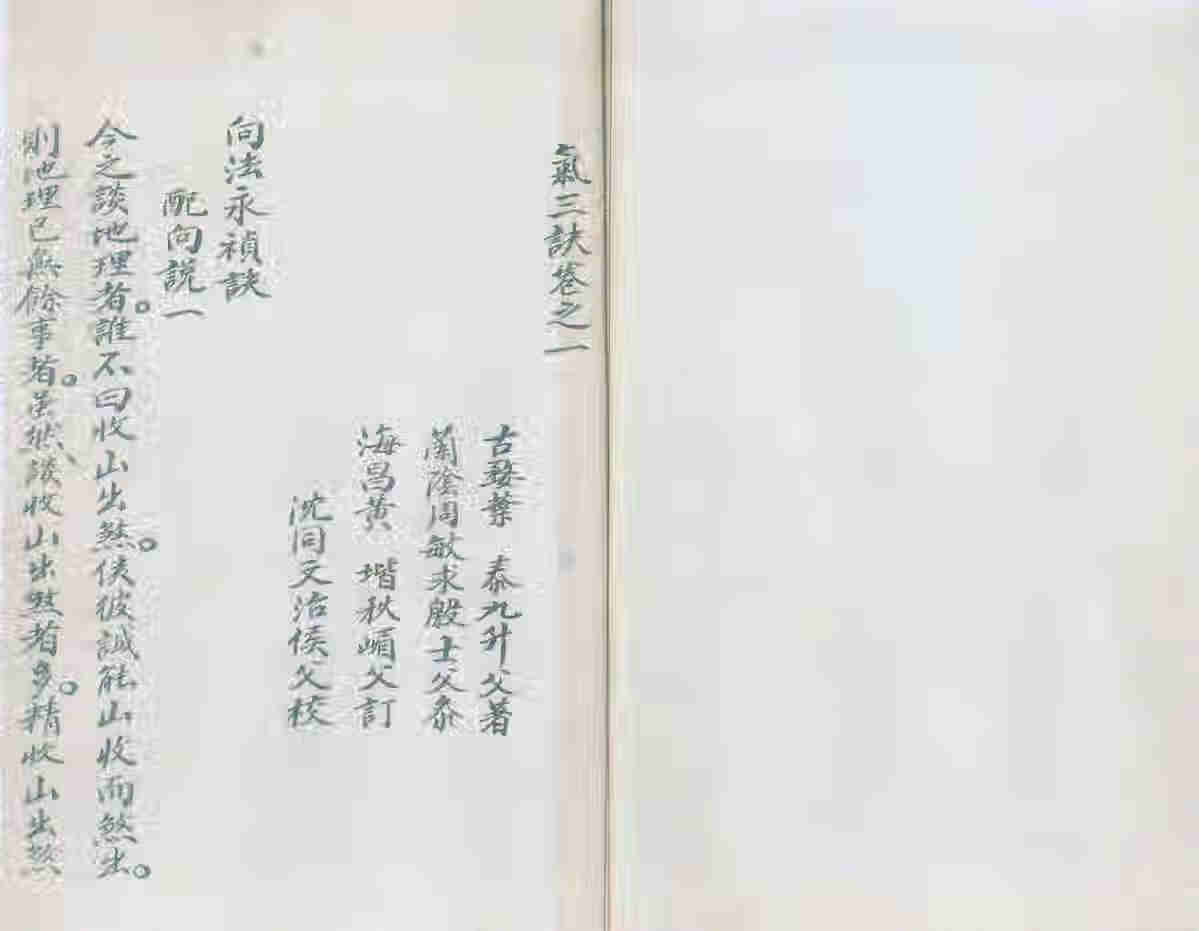 氣三訣卷之一
古婺葉 泰九升父著
蘭陰周敏求殷士父叅
海昌黄 堦秋嵋父訂
沈同文治侯父校
向法永禎談
配向説一
今之談地理者。誰不曰收山出煞。使彼誠能山收而煞出。
則地理已無餘事者。虽然、談收山出煞者多。精收山出煞